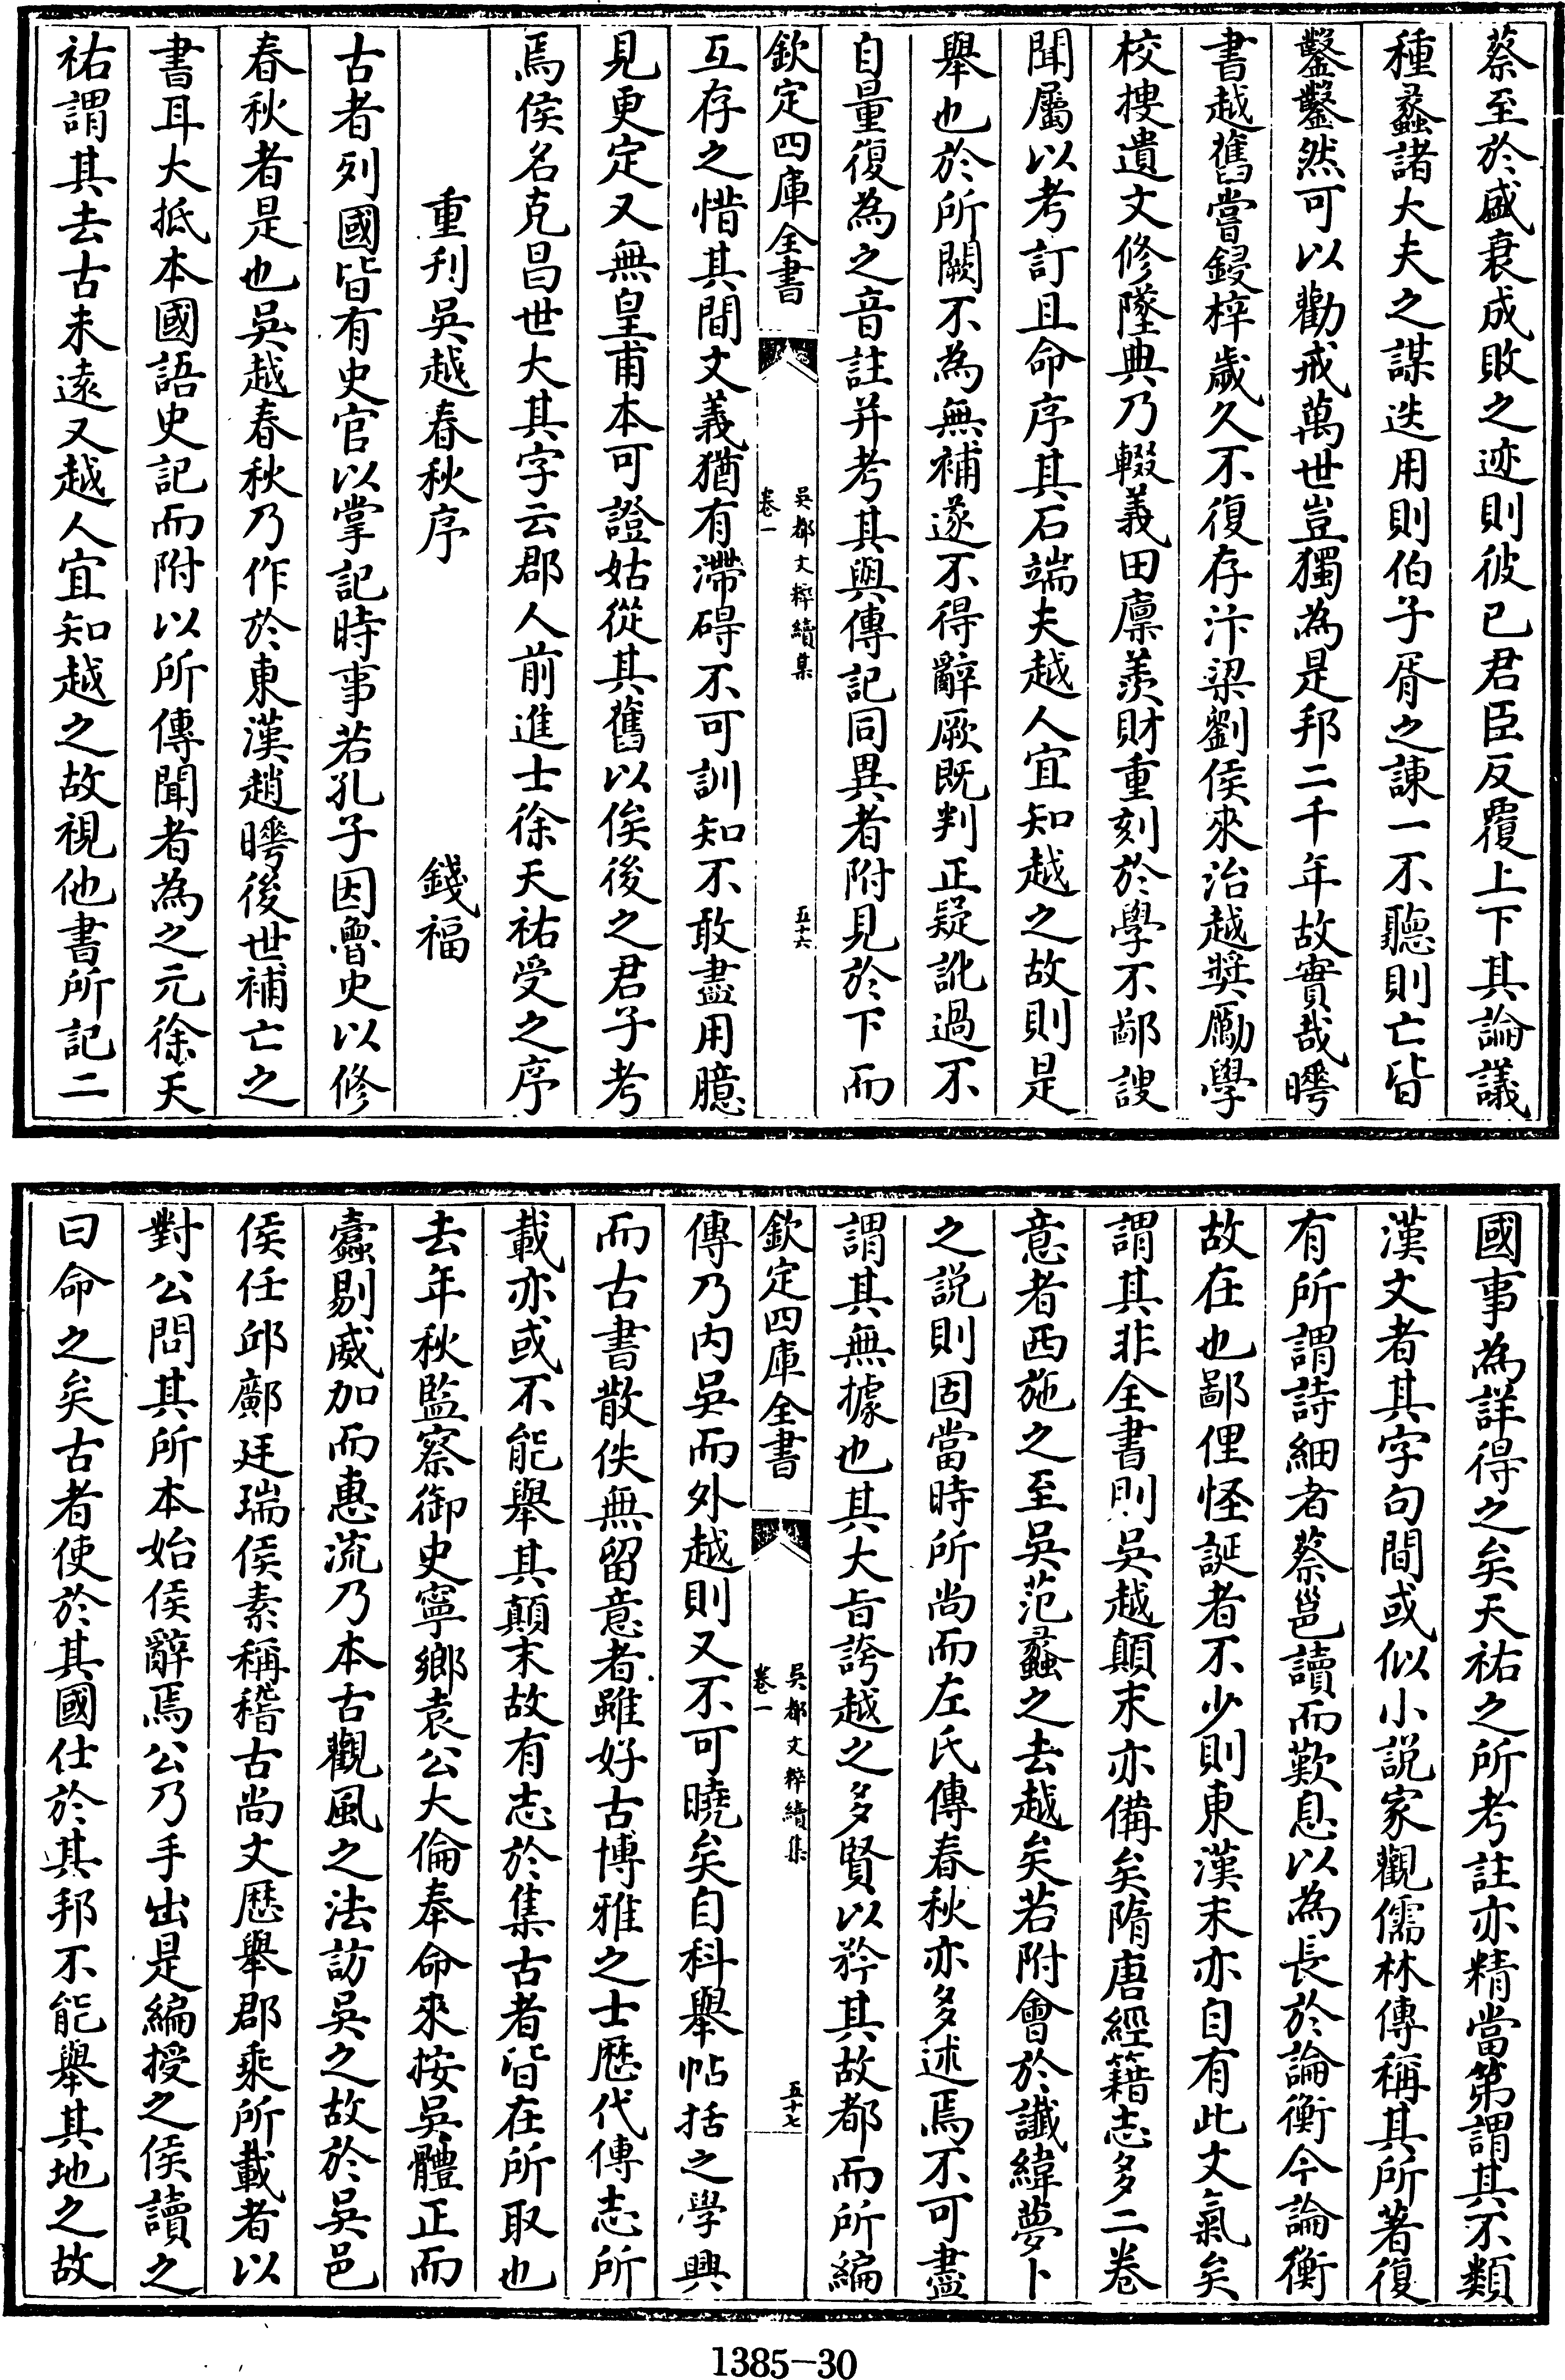 蔡至於盛衰成敗之迹則彼已君臣反覆上下其論議
種蠡諸大夫之謀迭用則伯子胥之諫一不聽則亡皆
鑿鑿然可以勸戒萬世豈獨為是邦二千年故實哉曄
書越舊嘗鋟梓歲久不復存汴梁劉侯來治越奬勵學
校捜遺文修墜典乃輟義田廪羨財重刻於學不鄙謏
聞屬以考訂且命序其石端夫越人宜知越之故則是
舉也於所闕不為無補遂不得辭厥既判正疑訛過不
自量復為之音註并考其與傳記同異者附見於下而
欽定四庫全書
吳都文粹續集
卷一
五十六
互存之惜其間文義猶有滯碍不可訓知不敢盡用臆
見更定又無皇甫本可證姑從其舊以俟後之君子考
焉侯名克昌世大其字云郡人前進士徐天祐受之序
重刋吳越春秋序
錢福
古者列國皆有史官以掌記時事若孔子因魯史以修
春秋者是也吳越春秋乃作於東漢趙曄後世補亡之
書耳大抵本國語史記而附以所傳聞者為之元徐天
祐謂其去古未遠又越人宜知越之故視他書所記二
國事為詳得之矣天祐之所考註亦精當第謂其不類
漢文者其字句間或似小説家觀儒林傳稱其所著復
有所謂詩細者蔡邕讀而歎息以為長於論衡今論衡
故在也鄙俚怪誕者不少則東漢末亦自有此文氣矣
謂其非全書則吳越顛末亦備矣隋唐經籍志多二卷
意者西施之至吳范蠡之去越矣若附會於讖緯夢卜
之説則固當時所尚而左氏傳春秋亦多述焉不可盡
謂其無據也其大㫖誇越之多賢以矜其故都而所編
欽定四庫全書
吳都文粹續集
卷一
五十七
傳乃内吳而外越則又不可曉矣自科舉帖括之學興
而古書散佚無留意者雖好古博雅之士歴代傳志所
載亦或不能舉其顛末故有志於集古者皆在所取也
去年秋監察御史寧鄉袁公大倫奉命來按吳體正而
蠧剔威加而惠流乃本古觀風之法訪吳之故於吳邑
侯任邱鄺廷瑞侯素稱稽古尚文歴舉郡乘所載者以
對公問其所本始侯辭焉公乃手出是編授之侯讀之
曰命之矣古者使於其國仕於其邦不能舉其地之故
1385-30